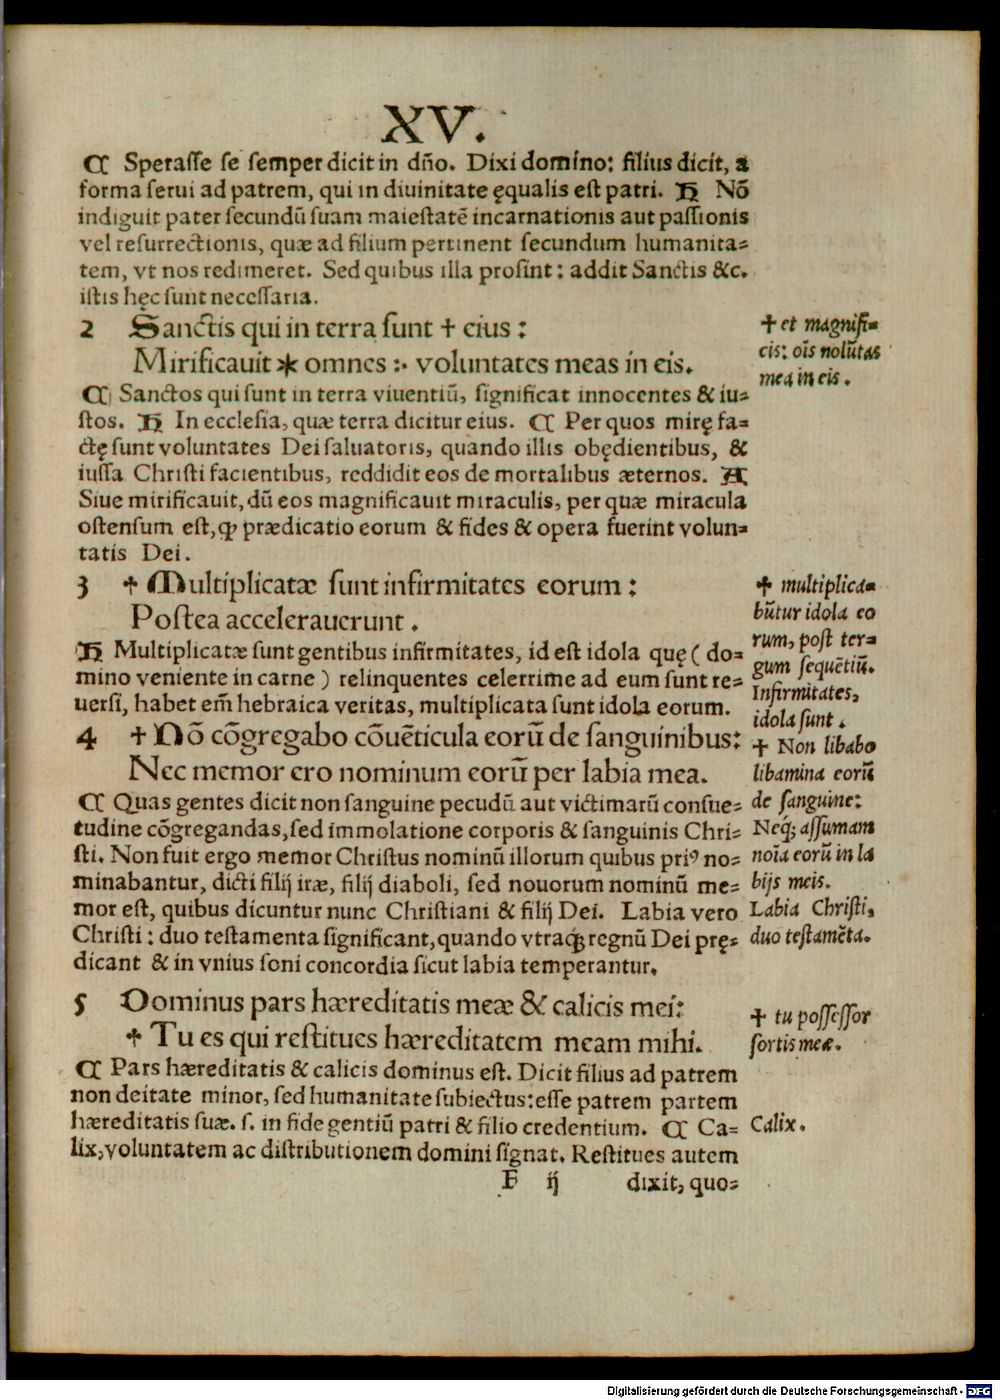 XV.
₵ Speraſſe ſe ſemper dicit in dño. Dixi domino: filius dicit, a
forma ſerui ad patrem, qui in diuinitate ęqualis eſt patri. H Nõ
indiguit pater ſecundũ ſuam maieſtatẽ incarnationis aut paſſionis
vel reſurrectionis, quæ ad filium pertinent ſecundum humanita⸗
tem, vt nos redimeret. Sed quibus illa proſint: addit Sanctis &c.
iſtis hęc ſunt neceſſaria.
2 Sanctis qui in terra ſunt ✝ eius:
Mirificauit * omnes :· voluntates meas in eis.
₵ Sanctos qui ſunt in terra viuentiũ, ſignificat innocentes & iu⸗
ſtos. H In eccleſia, quæ terra dicitur eius. ₵ Per quos mirę fa⸗
ctę ſunt voluntates Dei ſaluatoris, quando illis obędientibus, &
iuſſa Chriſti facientibus, reddidit eos de mortalibus æternos. A
Siue mirificauit, dũ eos magnificauit miraculis, per quæ miracula
oſtenſum eſt, ꝙ prædicatio eorum & fides & opera fuerint volun⸗
tatis Dei.
3 ✝ Multiplicatæ ſunt infirmitates eorum:
Poſtea accelerauerunt.
H Multiplicatæ ſunt gentibus infirmitates, id eſt idola quę ( do⸗
mino veniente in carne ) relinquentes celerrime ad eum ſunt re⸗
uerſi, habet em̃ hebraica veritas, multiplicata ſunt idola eorum.
4 ✝ Nõ cõgregabo cõuẽticula eorũ de ſanguinibus:
Nec memor ero nominum eorũ per labia mea.
₵ Quas gentes dicit non ſanguine pecudũ aut victimarũ conſue⸗
tudine cõgregandas, ſed immolatione corporis & ſanguinis Chri⸗
ſti. Non fuit ergo memor Chriſtus nominũ illorum quibus priꝰ no⸗
minabantur, dicti filij iræ, filij diaboli, ſed nouorum nominũ me⸗
mor eſt, quibus dicuntur nunc Chriſtiani & filij Dei. Labia vero
Chriſti: duo teſtamenta ſignificant, quando vtraq; regnũ Dei prę⸗
dicant & in vnius ſoni concordia ſicut labia temperantur.
5 Dominus pars hæreditatis meæ & calicis mei:
✝ Tu es qui reſtitues hæreditatem meam mihi.
₵ Pars hæreditatis & calicis dominus eſt. Dicit filius ad patrem
non deitate minor, ſed humanitate ſubiectus: eſſe patrem partem
hæreditatis ſuæ. ſ. in fide gentiũ patri & filio credentium. ₵ Ca⸗
lix, voluntatem ac diſtributionem domini ſignat. Reſtitues autem
F ij dixit, quo⸗
✝ et magnifi⸗
cis: oĩs nolũtas
mea in eis.
✝ multiplica⸗
bũtur idola eo
rum, poſt ter⸗
gum ſequẽtiũ.
Infirmitates,
idola ſunt.
✝ Non libabo
libamina eorũ
de ſanguine:
Neq; aſſumam
noĩa eorũ in la
bijs meis.
Labia Chriſti,
duo teſtamẽta.
✝ tu poſſeſſor
ſortis meæ.
Calix.
Digitalisierung gefördert durch die Deutsche Forschungsgemeinschaft - DFG